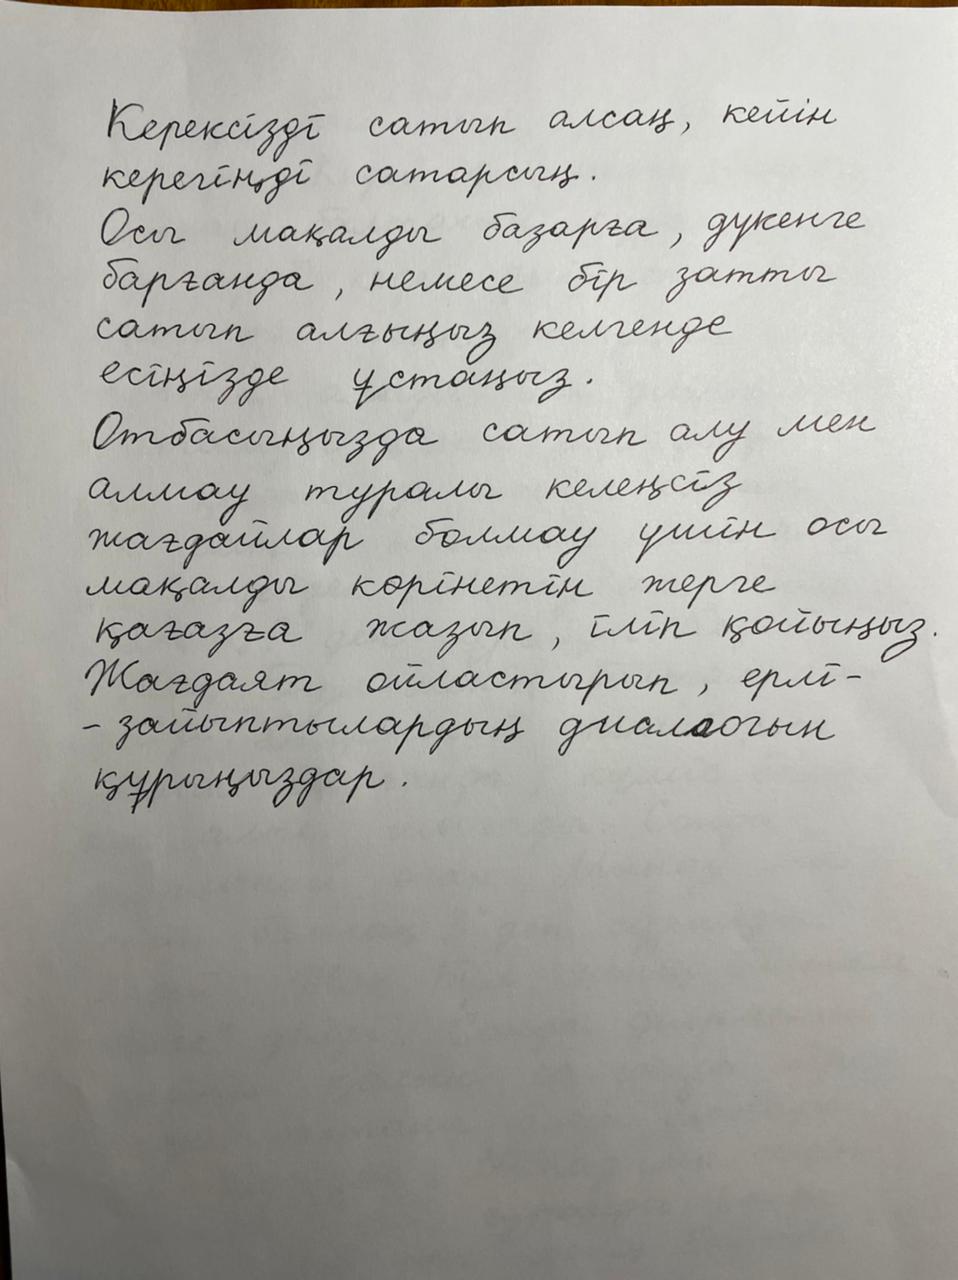 Керексізді сатып алсаң, кейін
керегіңді сатарсың.
Осы мақалды базарға, дүкенге
барғанда, немесе бір затты
сатып алғыңыз келгенде
есіңізде ұстаңыз.
Отбасыңызда сатып алу мен
алмау туралы келеңсіз
жағдайлар болмау үшін осы
мақалды көрінетін жерге
қағазға жазып, іліп қойыңыз.
Жағдаят ойластырып, ерлі-
-зайыптылардың диалогын
құрыңыздар.